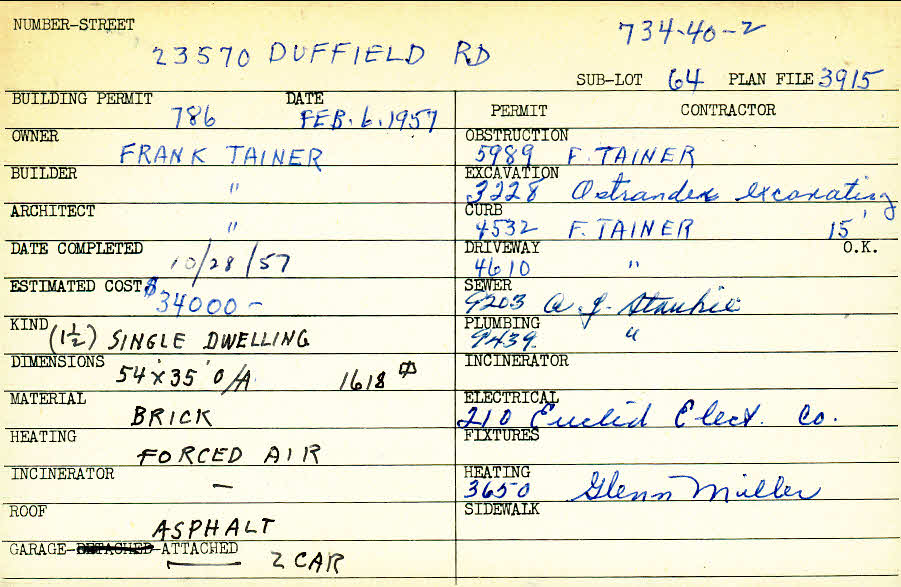 NUMBER-STREET
734-40-2
23570 DUFFIELD RD
SUB-LOT 64 PLAN FILE 3915
BUILDING PERMIT 786 DATE FEB. 6, 1957
OWNER FRANK TAINER
BUILDER "
ARCHITECT "
DATE COMPLETED 10/28/57
ESTIMATED COST $34000-
KIND (1½) SINGLE DWELLING
DIMENSIONS 54'x35' O/A 1618
MATERIAL BRICK
HEATING FORCED AIR
INCINERATOR -
ROOF ASPHALT
GARAGE-DETACHED-ATTACHED 2 CAR
PERMIT CONTRACTOR
OBSTRUCTION
5989 F. TAINER
EXCAVATION
3228 Ostrander excavating
CURB
4532 F. TAINER 15'
DRIVEWAY O.K.
4610 "
SEWER
9203 A. J.
PLUMBING
9439 "
INCINERATOR
ELECTRICAL
210 Euclid Elect. Co.
FIXTURES
HEATING
3650 Glenn Miller
SIDEWALK